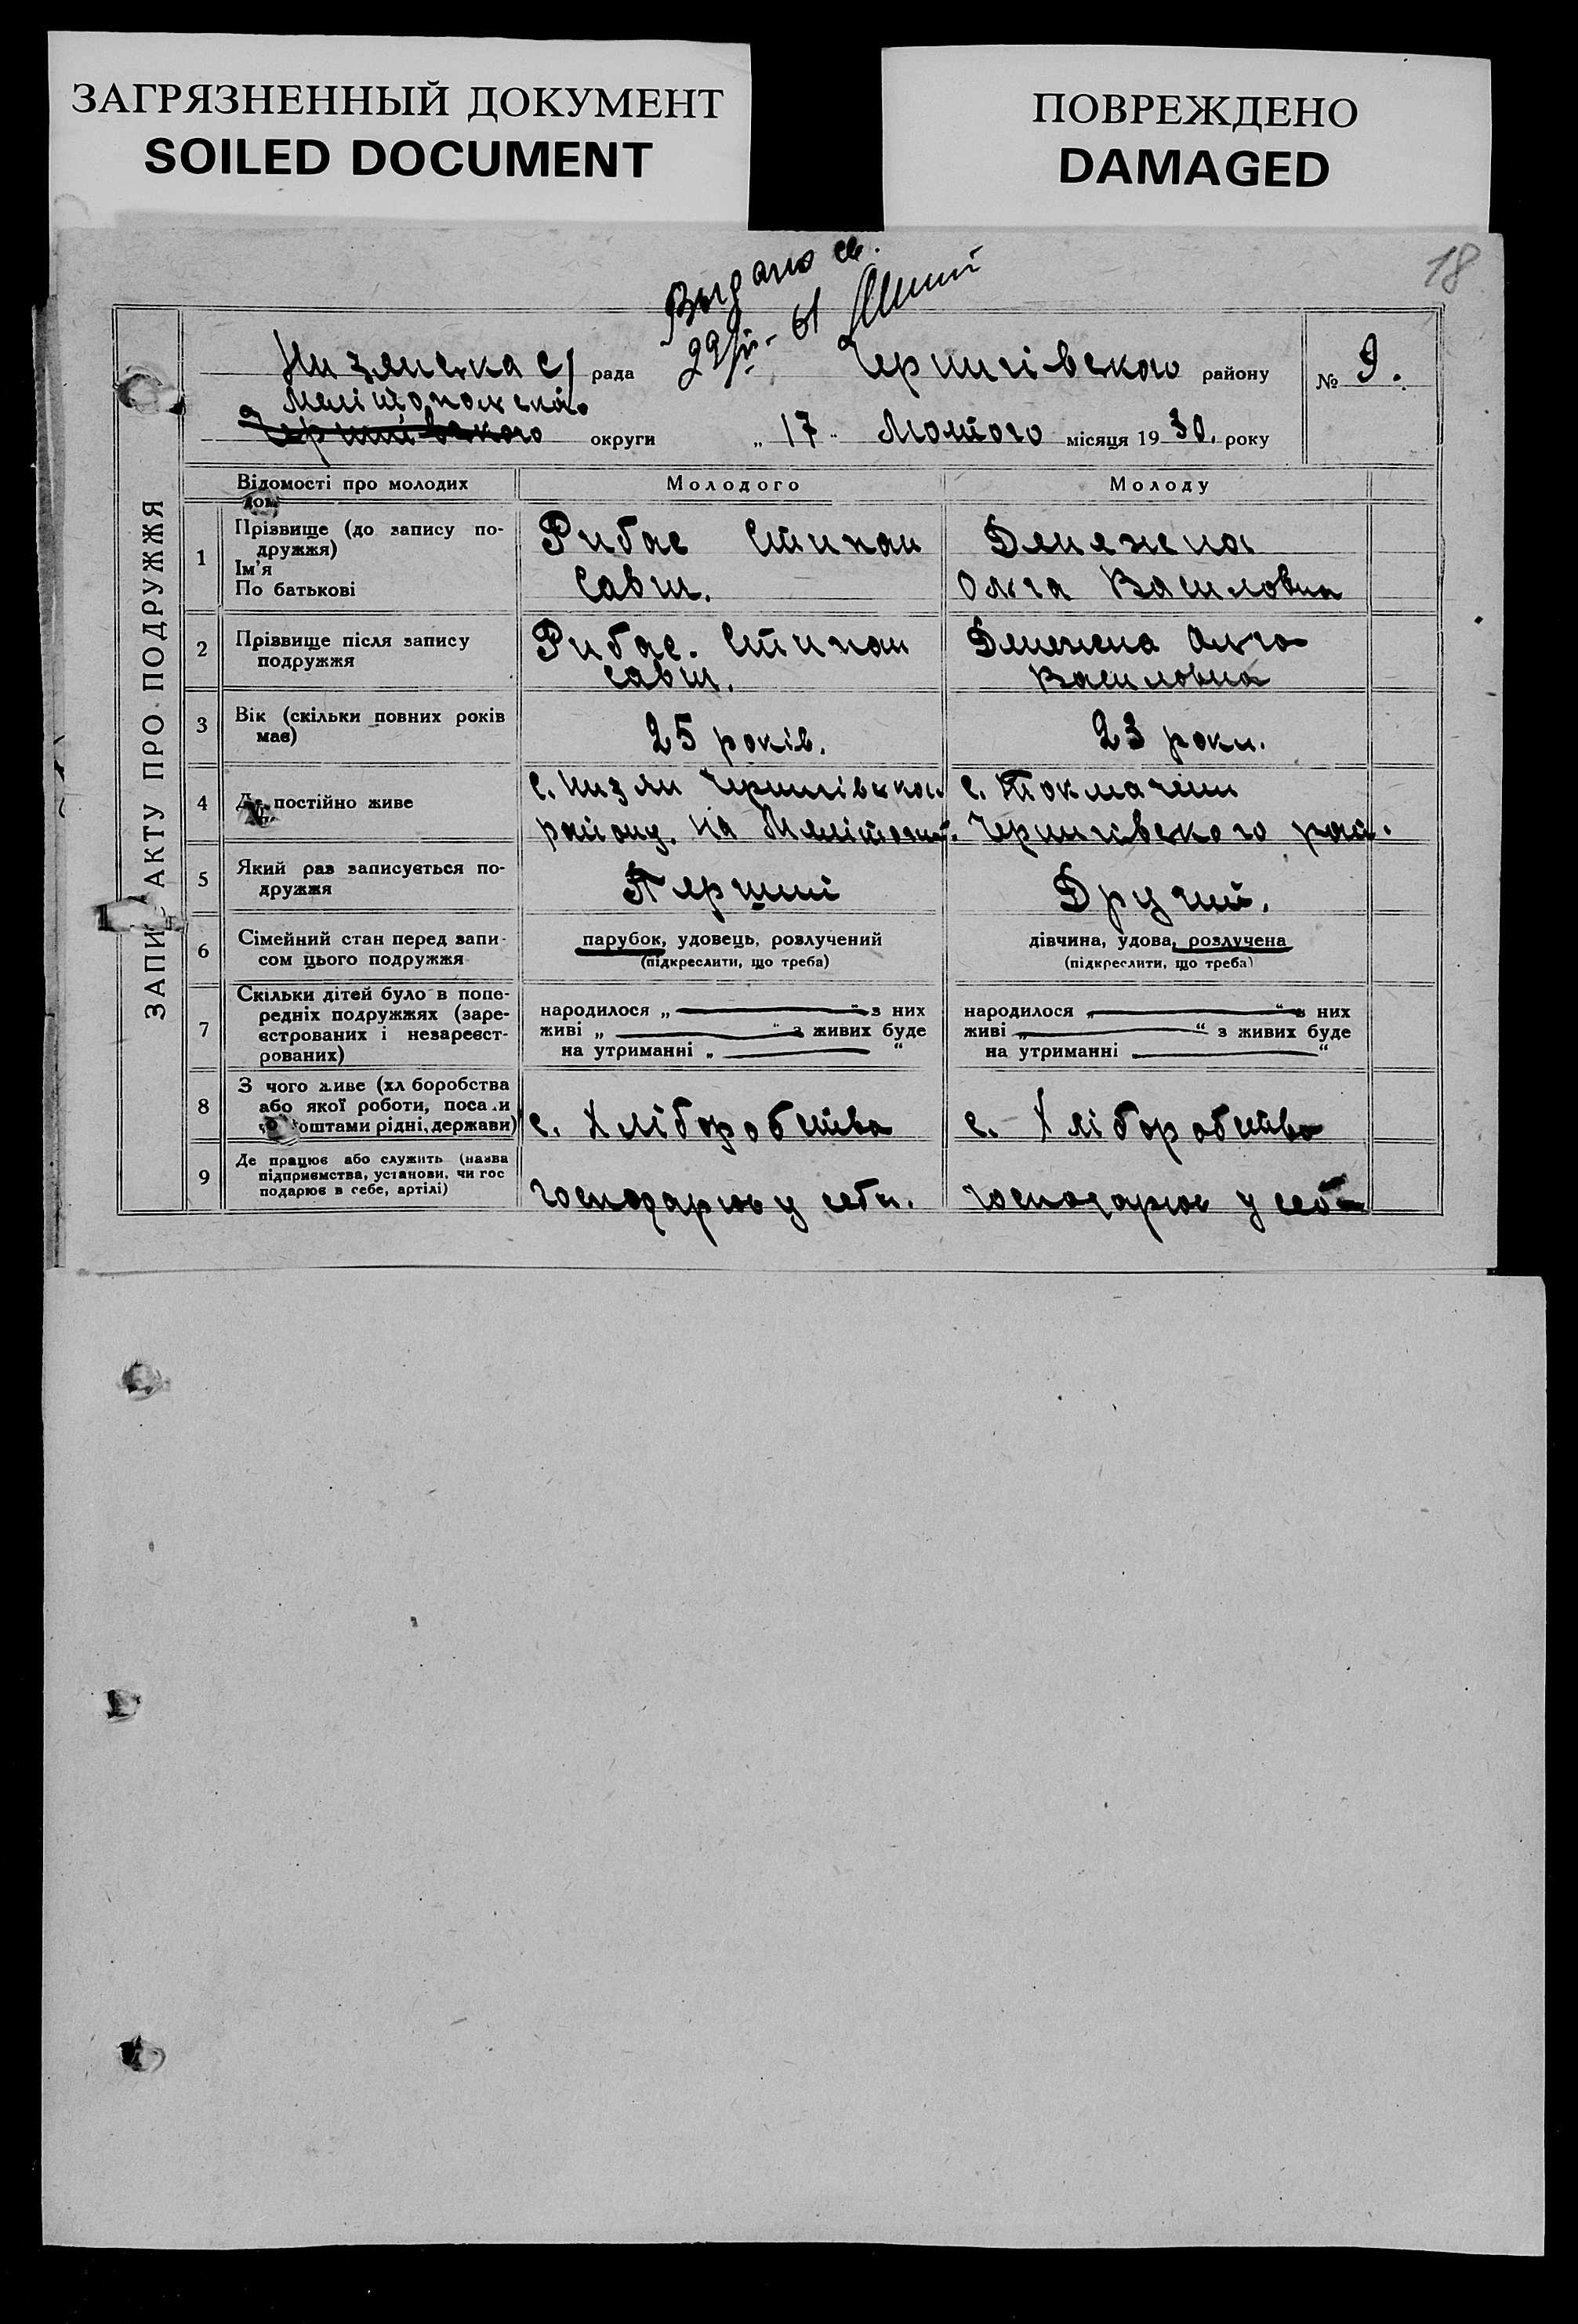 ЗАГРЯЗНЕННЫЙ ДОКУМЕНТ
SOILED DOCUMENT
ПОВРЕЖДЕНО
DAMAGED
18
Видано св.
61
Низянська с/рада Чернигівського району № 9.
Мелітопольска
Чернигівського округи „17" Лютого місяця 1930. року
ЗАПИС АКТУ ПРО ПОДРУЖЖЯ
Відомості про молодих Молодого Молоду
1 Прізвище (до запису по-
дружжя)
Ім'я
По батькові
Рибас Стипан
Савич.
Ольга Василовна
2 Прізвище після запису
подружжя
Рибас. Стипан
Савич.
Ольга
Василовна
3 Вік (скільки повних років
має)
25 років.
23 роки.
4 Де постійно живе
с. Низяни Чернигівського
району. на Мелітопол.
с. Токмачци
Чернигівского рай.
5 Який раз записується по-
дружжя
Перший
Другий.
6 Сімейний стан перед запи-
сом цього подружжя
парубок, удовець, розлучений
(підкреслити, що треба)
дівчина, удова, розлучена
(підкреслити, що треба)
7 Скільки дітей було в попе-
редніх подружжях (заре-
єстрованих і незареєст-
рованих)
народилося „ " з них
живі „ " з живих буде
на утриманні „ "
народилося „ " з них
живі „ " з живих буде
на утриманні "
8 З чого живе (хліборобства
або якої роботи, посади
коштами рідні, держави)
с. Хліборобства
с. Хліборобства
9 Де працює або служить (назва
підприємства, установи, чи гос
подарює в себе, артілі)
господарює у себе.
господарює у себе